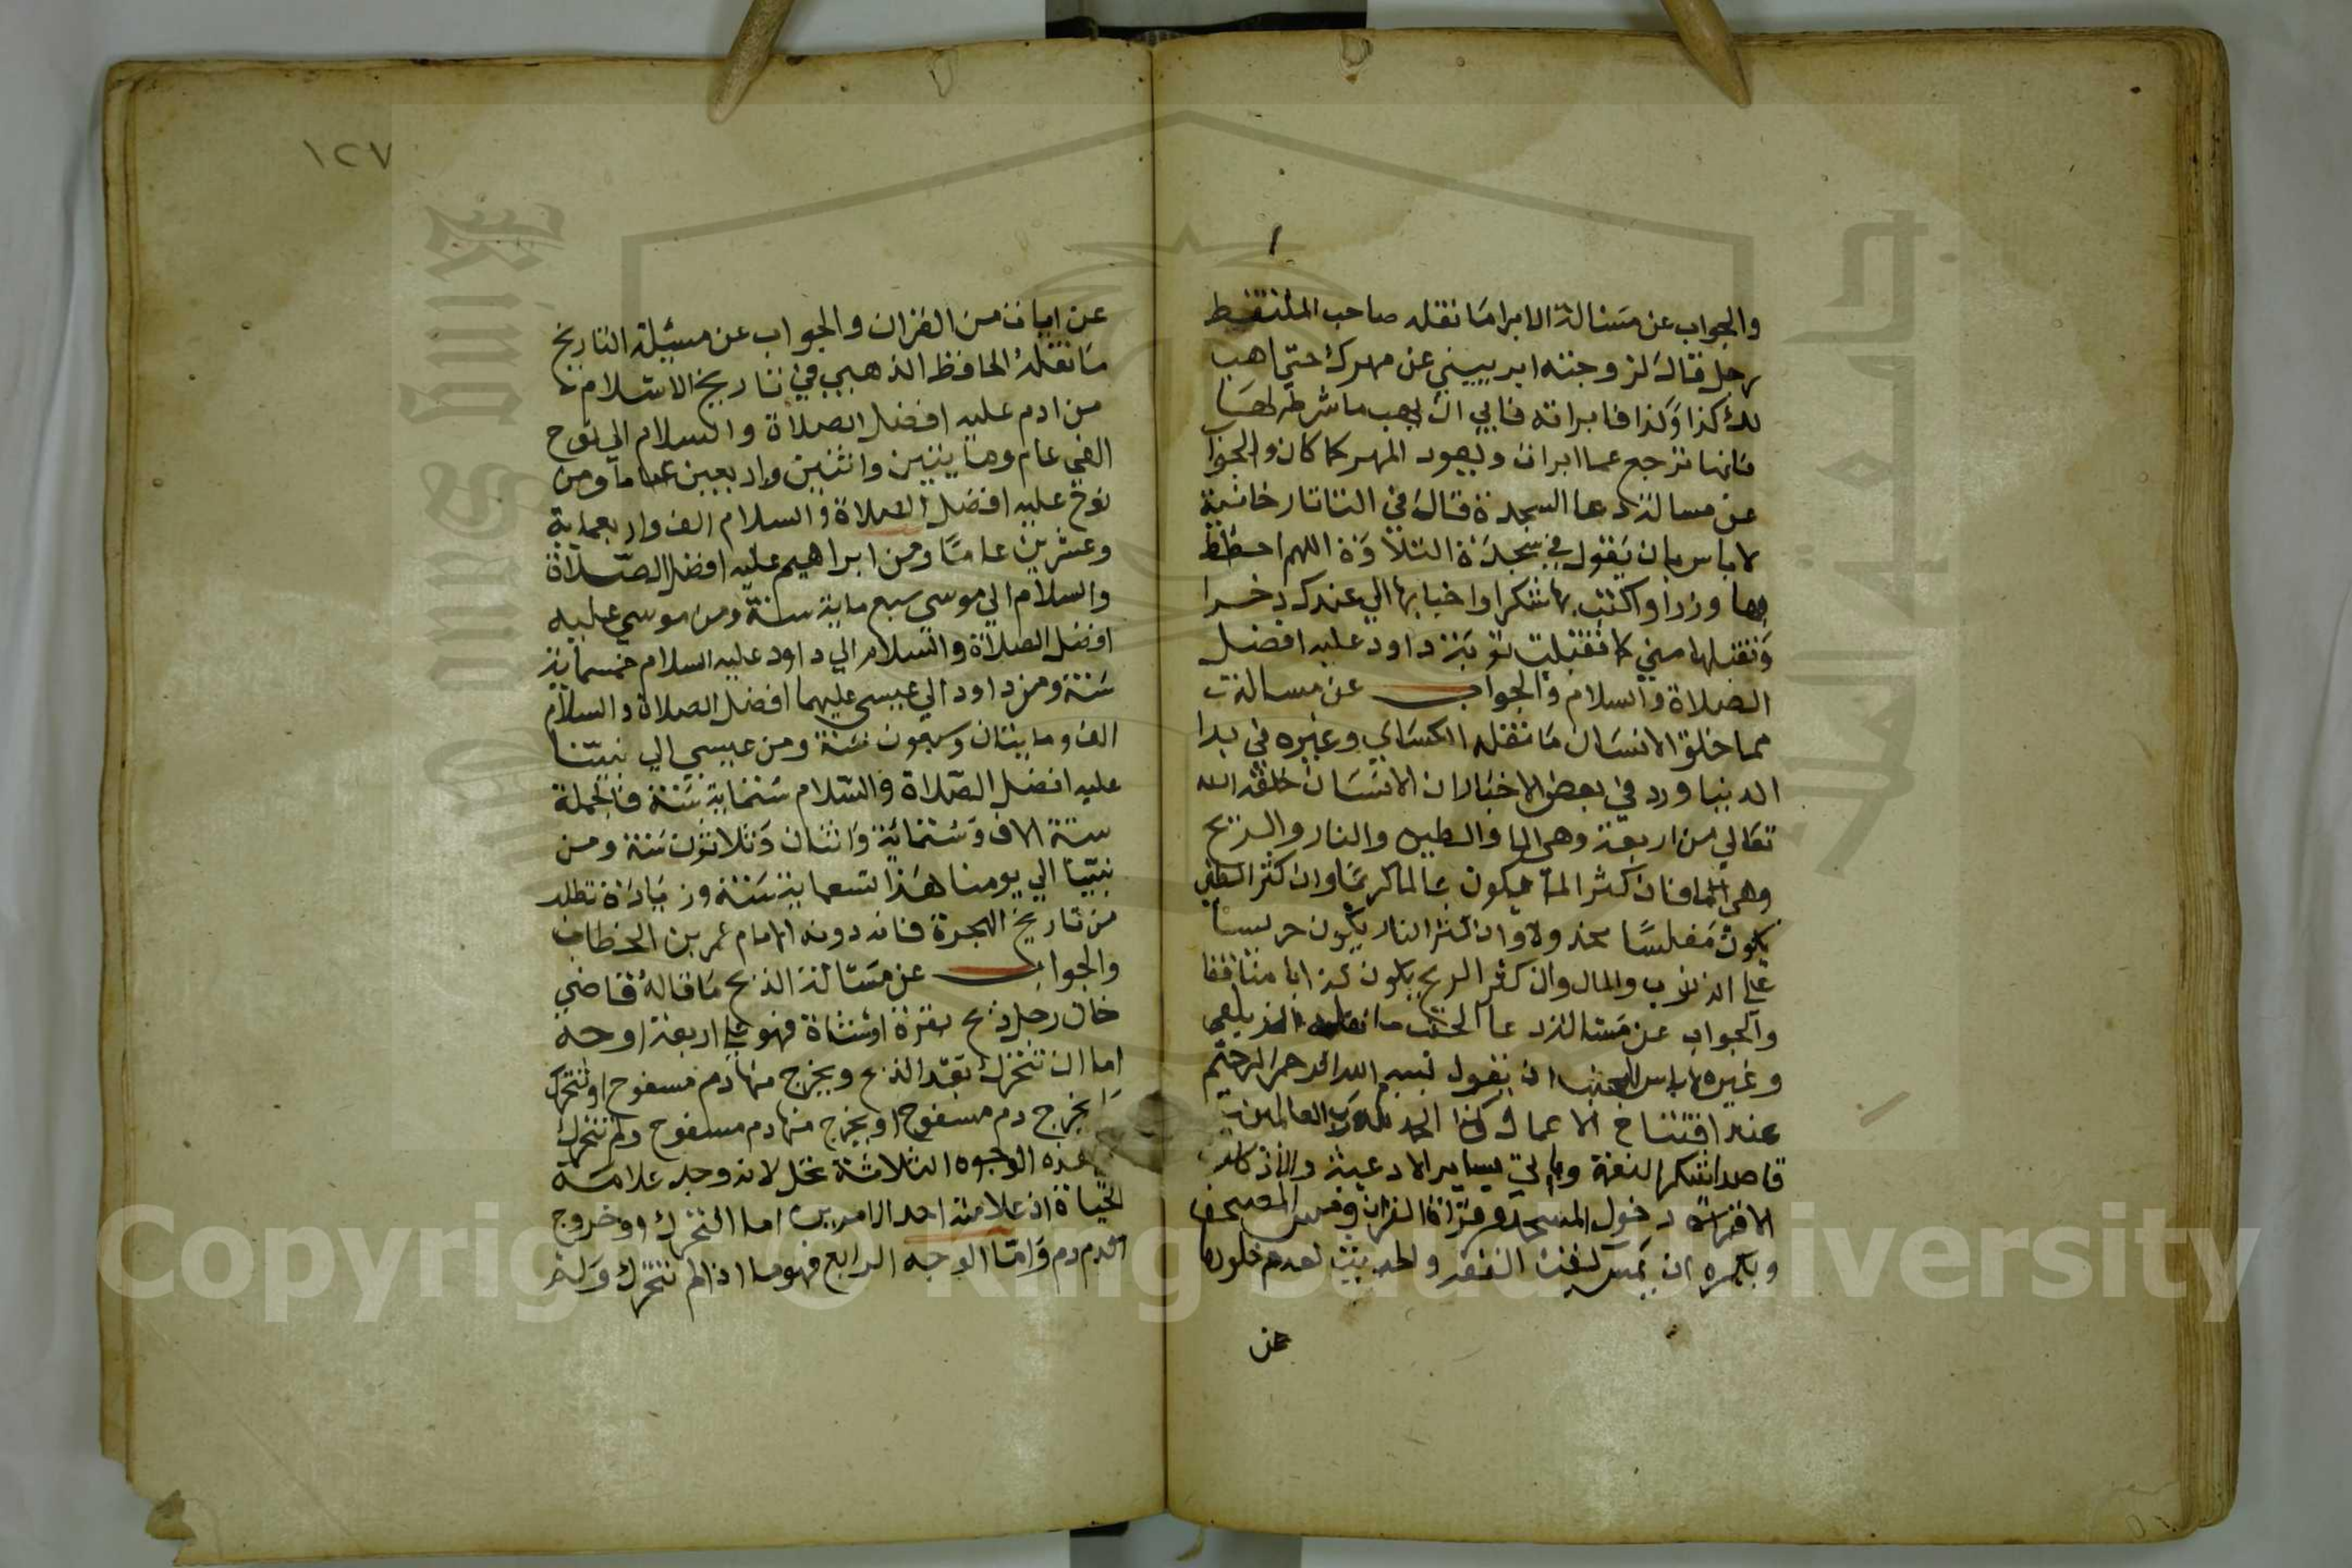 والجواب عن مسالة الابرا ما نقله صاحب الملتقط
رجل قال لزوجته ابرييني عن مهرك حتي اهب
لك كذا وكذا فابراته فابي ان يهب ما شرطه لها
فانها ترجع عما ابرات ويعود المهر كما كان والجواب
عن مسالة دعا السجدة قال في التاتارخانية
لا باس بان يقول في سجدة التلاوة اللهم احطط
بها وزرا واكتب بها شكرا واخبا بها لي عندك ذخرا
وتقبلها مني كما تقبلت توبة داود عليه افضل
الصلاة والسلام والجواب عن مسالة
مما خلق الانسان ما نقله الكساي وغيره في بدا
الدنيا ورد في بعض الاخبار ان الانسان خلقه الله
تعالي من اربعة وهي الما والطين والنار والريح
وهي الما فان كثر الما فيكون عالما كريما وان كثر الطين
يكون مفلسا مخذولا وان كثر النار يكون حريصا
علي الذنوب والمال وان كثر الريح يكون كذابا منافقا
والجواب عن مسالة دعا الجنب ما نقله الزيلعي
وغيره لا باس للجنب ان يقول بسم الله الرحمن الرحيم
عند افتتاح الاعمال وكذا الحمد لله رب العالمين
قاصدا شكر النعمة وياتي بساير الادعية والاذكار
الا قراة دخول المسجد وقراة القران ومس المصحف
ويكره ان يمس كتب الفقه والحديث لعدم خلوها
عن
١٢٧
عن ايات من القران والجواب عن مسئلة التاريخ
ما نقله الحافظ الذهبي في تاريخ الاسلام
من ادم عليه افضل الصلاة والسلام الي نوح
الفي عام ومايتين واثنين واربعين عاما ومن
نوح عليه افضل الصلاة والسلام الف واربعماية
وعشرين عاما ومن ابراهيم عليه افضل الصلاة
والسلام الي موسي سبع ماية سنة ومن موسي عليه
افضل الصلاة والسلام الي داود عليه السلام خمسماية
سنة ومن داود الي عيسي عليهما افضل الصلاة والسلام
الف ومايتان وسبعون سنة ومن عيسي الي نبينا
عليه افضل الصلاة والسلام ستماية سنة فالجملة
ستة الاف وستماية واثنان وثلاثون سنة ومن
نبينا الي يومنا هذا تسعماية سنة وزيادة تطلب
من تاريخ الهجرة فانه دونه الامام عمر بن الخطاب
والجواب عن مسالة الذبح ما قاله قاضي
خان رجل ذبح بقرة او شاة فهو علي اربعة اوجه
اما ان تتحرك بعد الذبح ويخرج منها دم مسفوح او تتحرك
يخرج دم مسفوح او يخرج منها دم مسفوح ولم تتحرك
هذه الوجوه الثلاثة تحل لانه وجد علامة
الحياة اذ علامته احد الامرين اما التحرك او خروج
الدم دم واما الوجه الرابع فهو ما اذا لم تتحرك ولم
Copyright © King Saud University
King Saud